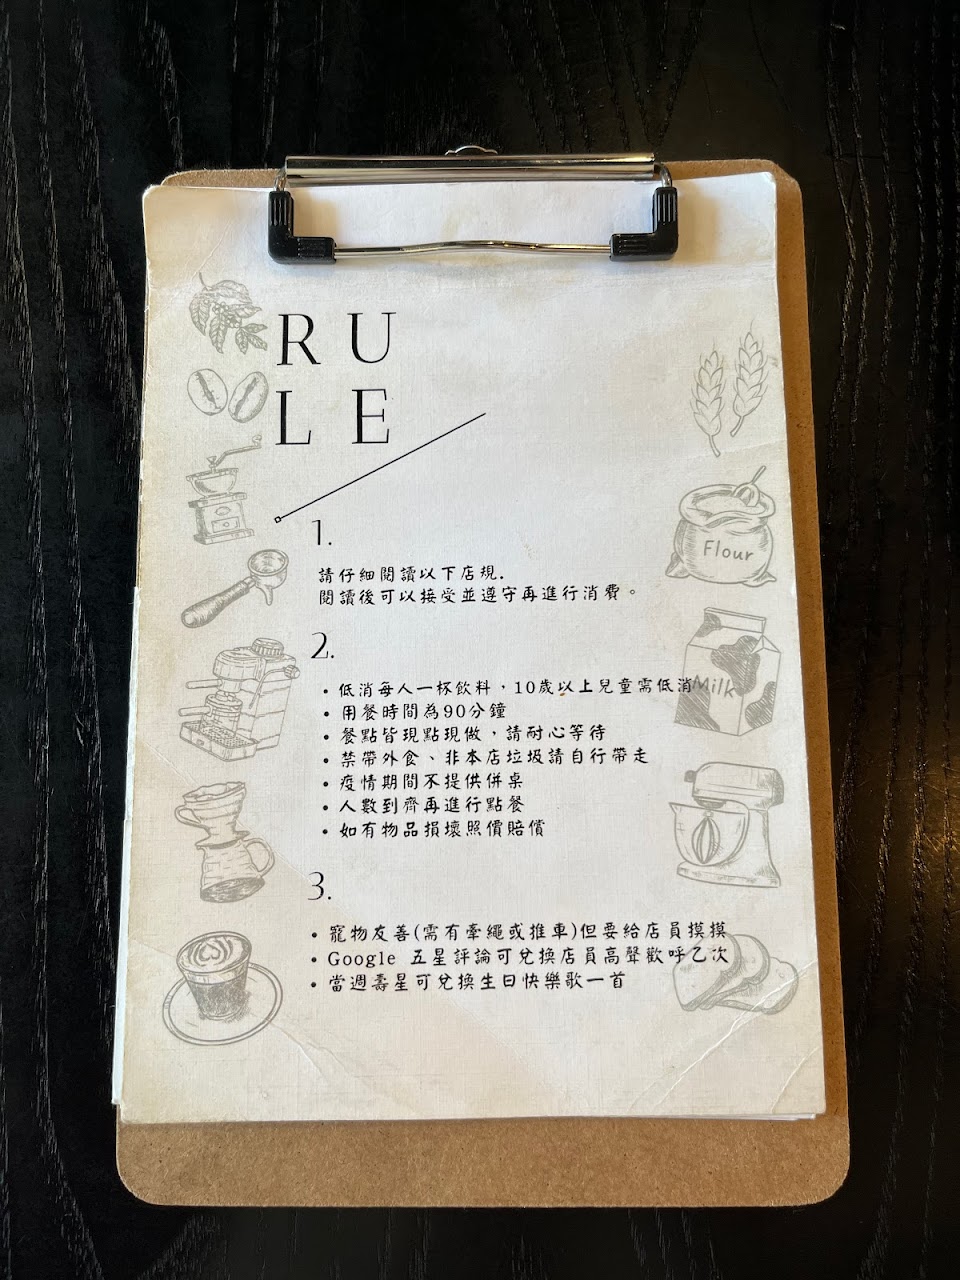 RU
LE
1.
請仔細閱讀以下店規.
閱讀後可以接受並遵守再進行消費。
2.
• 低消每人一杯飲料，10歲以上兒童需低消
• 用餐時間為90分鐘
• 餐點皆現點現做，請耐心等待
• 禁帶外食、非本店垃圾請自行帶走
• 疫情期間不提供併桌
• 人數到齊再進行點餐
• 如有物品損壞照價賠償
3.
• 寵物友善(需有牽繩或推車)但要給店員摸摸
• Google 五星評論可兌換店員高聲歡呼乙次
• 當週壽星可兌換生日快樂歌一首
Flour
Milk